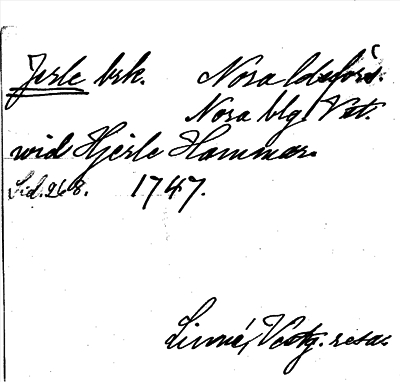 Jerle brk. Nora ldsförs.
Nora blg. Vstm.
wid Hjerle Hammar.
Sid. 268. 1747.
Linné, Västg. resa